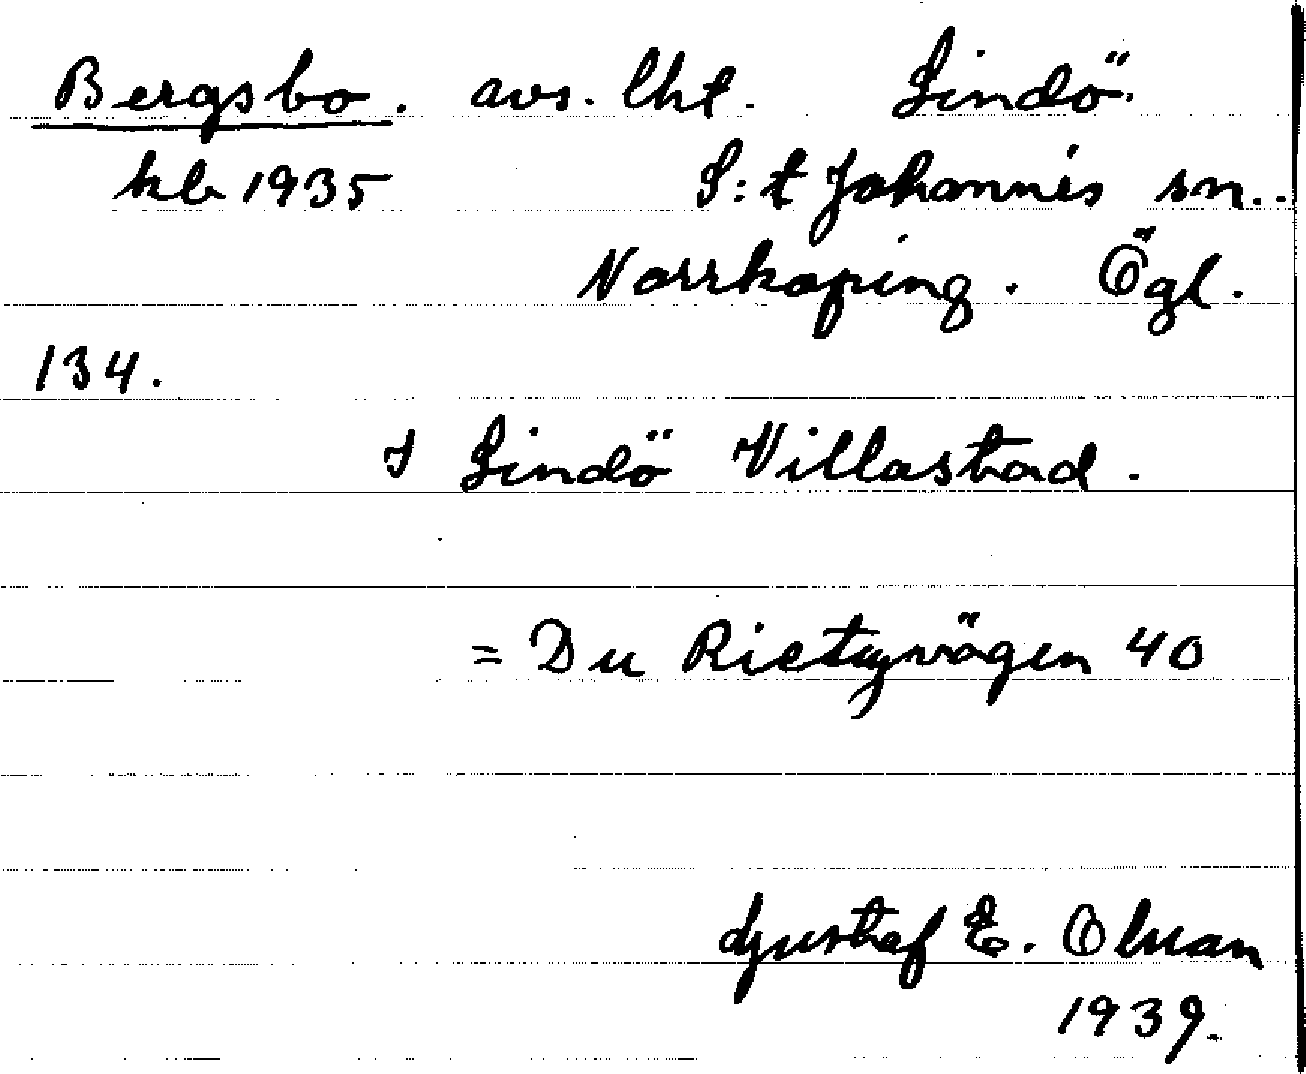 Bergsbo. avs. lht. Lindö.
kb 1935 S:t Johannes sn.
Norrköping. Ögl.
134.
I Lindö Villastad.
= Du Rietzvägen 40
Gustaf E. Olsson
1939.